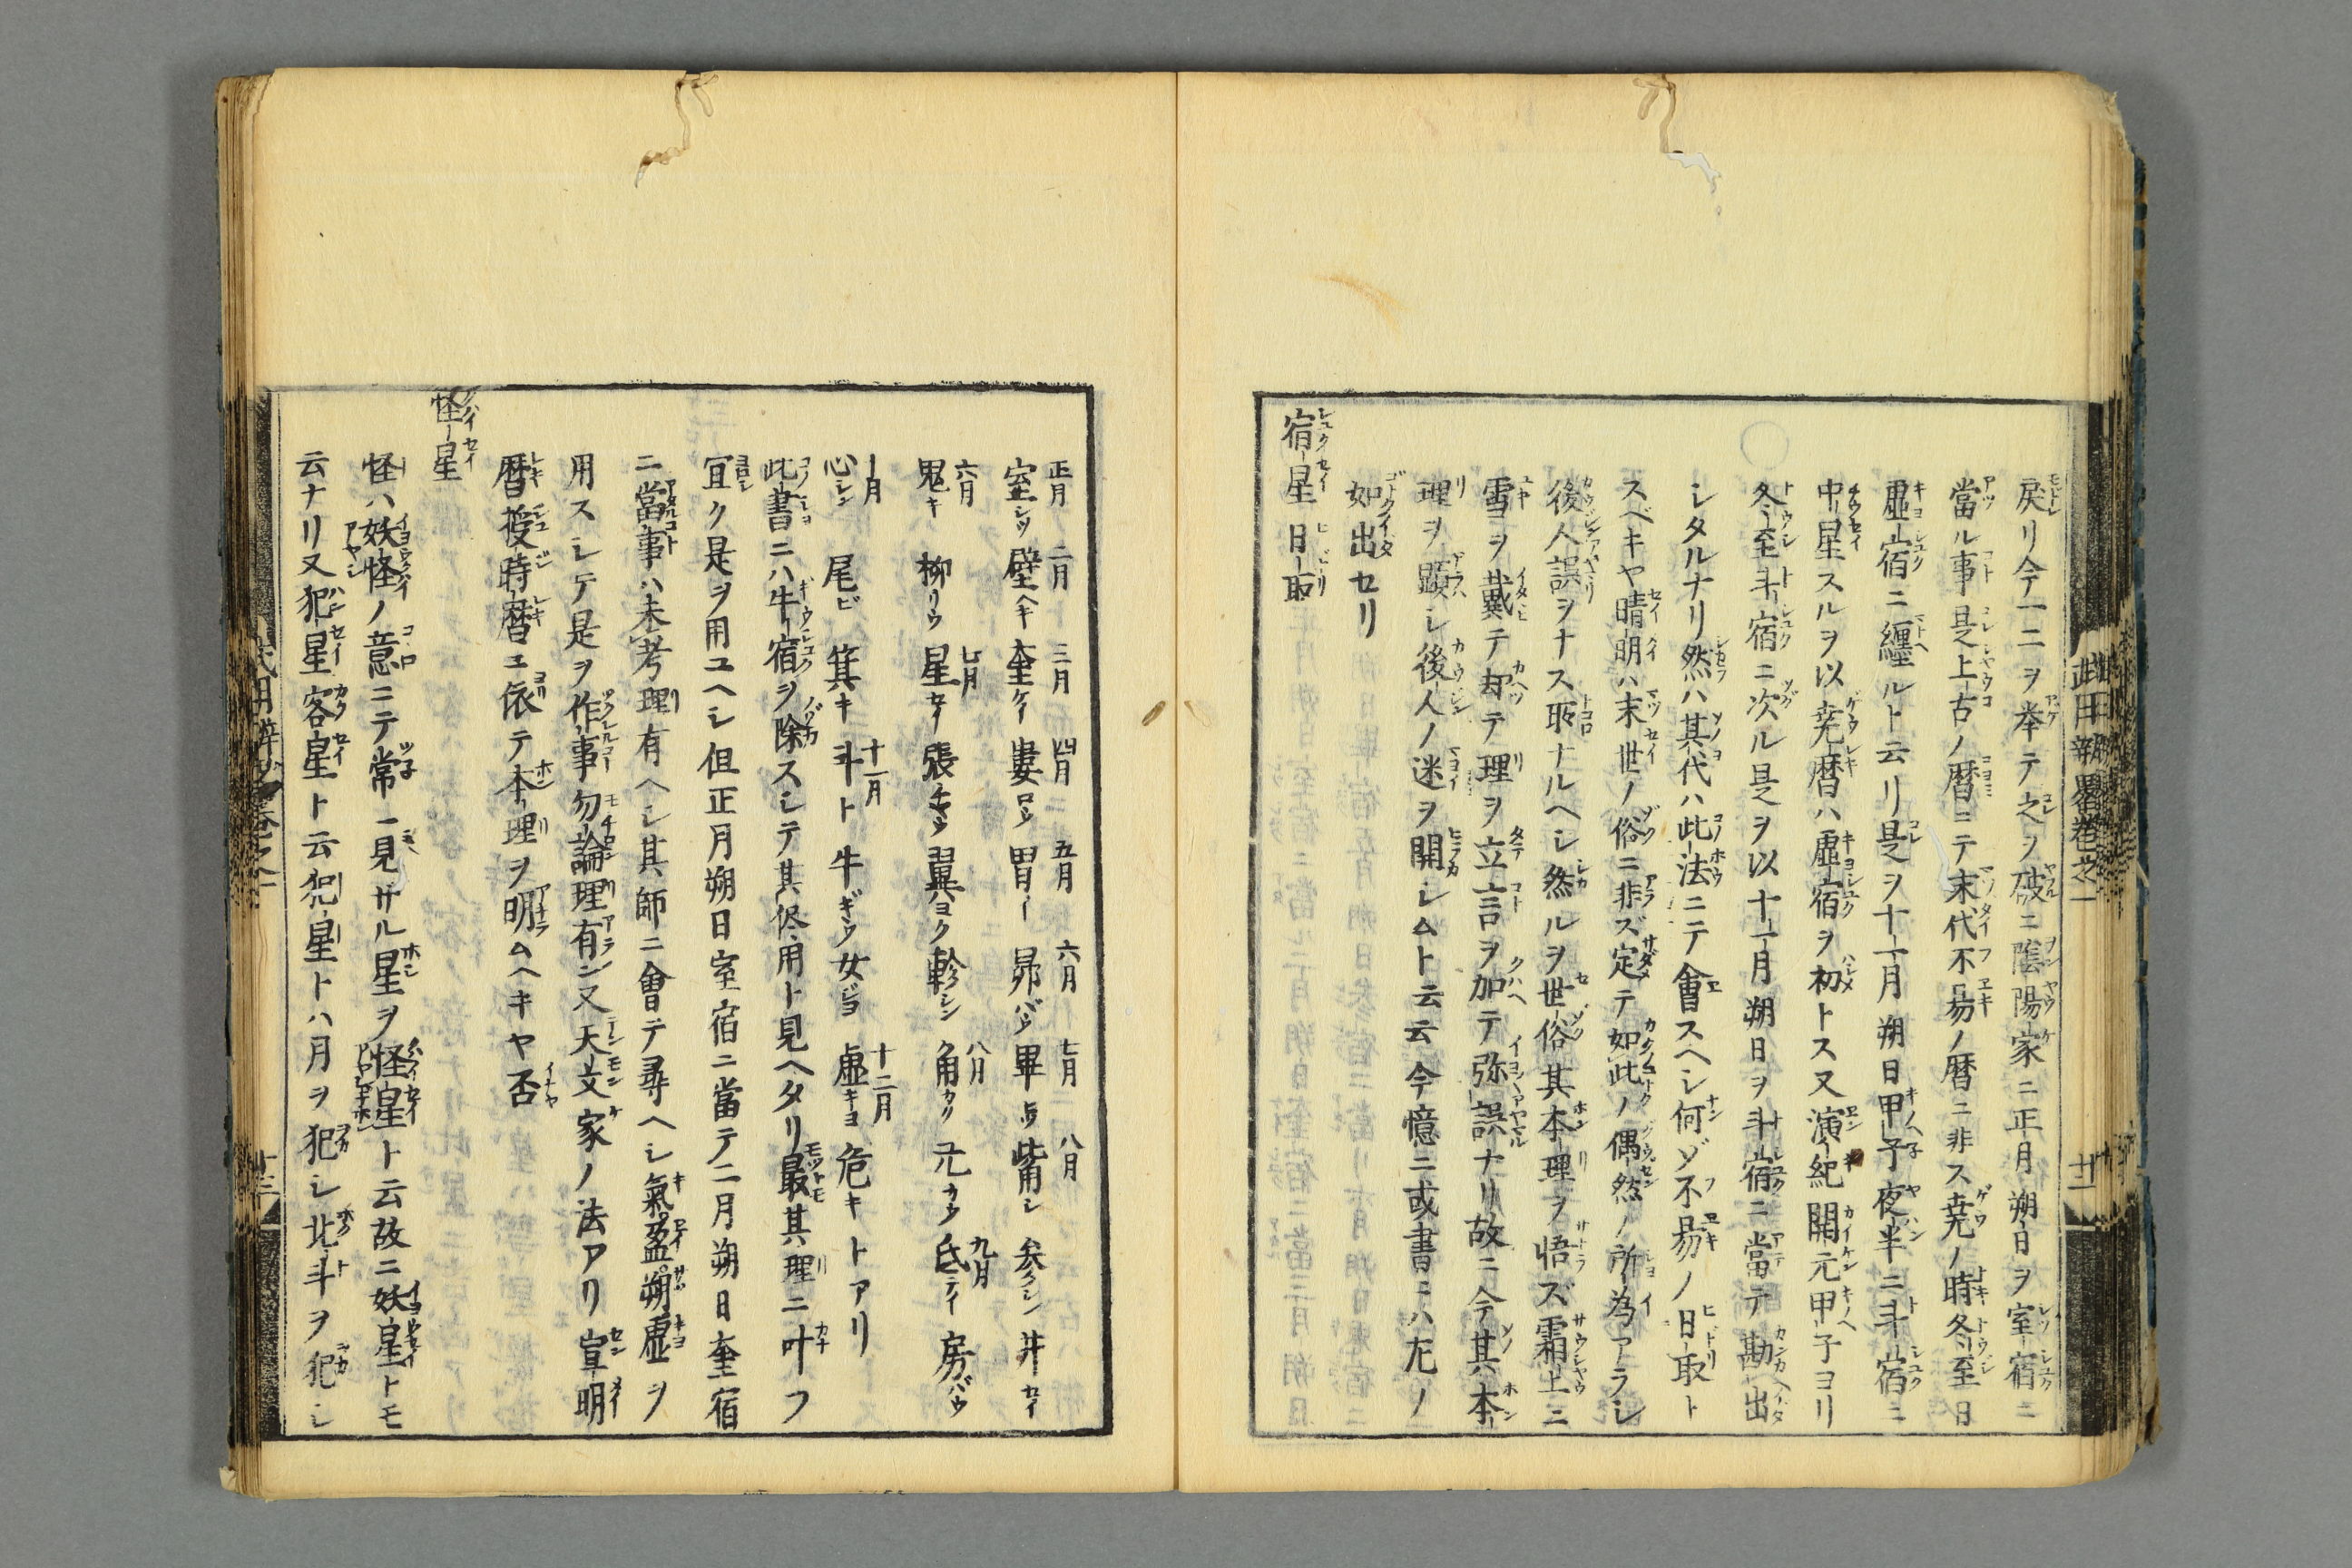 戻リ今一二ヲ挙テ之ヲ破ニ陰陽家ニ正月朔日ヲ室宿ニ
當ル事是上古ノ暦ニテ末代不易ノ暦ニ非ス堯ノ時冬至日
虚宿ニ纏ルト云リ是ヲ十一月朔日甲子夜半ニ斗宿ニ
中星スルヲ以堯暦ハ虚宿ヲ初トス又演紀開元甲子ヨリ
冬至斗宿ニ次ル是ヲ以十一月朔日ヲ斗宿ニ當テ勘出
シタルナリ然ハ其代ハ此法ニテ會スヘシ何ゾ不易ノ日取ト
スベキヤ晴明ハ末世ノ俗ニ非ズ定テ如此ノ偶然ノ所為アラシ
後人誤ヲナス取ナルヘシ然ルヲ世俗其本理ヲ悟ズ霜上ニ
雪ヲ戴テ却テ理ヲ立言ヲ加テ弥誤ナリ故ニ今其本
理ヲ顕シ後人ノ迷ヲ開シムト云云今憶ニ或書ニハ左ノ
如出セリ
宿星日取
正月 二月 三月 四月 五月 六月 七月 八月
室シツ 壁ヘキ 奎ケイ 婁ロウ 胃イ 昴バウ 畢 觜シ 参シン 井セイ
六月 七月 八月 九月
鬼キ 柳リウ 星セイ 張 翼ヨク 軫シン 角カク 亢カウ 氐テイ 房バウ
十月 十一月 十二月
心シン 尾ビ 箕キ 斗ト 牛ギウ 女 虚キヨ 危キトアリ
此書ニハ牛宿ヲ除スシテ其侭用ト見ヘタリ最其理ニ叶フ
宜ク是ヲ用ユヘシ但正月朔日室宿ニ當テ二月朔日奎宿
ニ當事ハ未考理有ヘシ其師ニ會テ尋ヘシ氣盈朔虚ヲ
用スシテ是ヲ作事勿論理有ン又天文家ノ法アリ宣明
暦授時暦ニ依テ本理ヲ明ムヘキヤ否
怪星
怪ハ妖怪ノ意ニテ常ニ見ザル星ヲ怪星ト云故ニ妖星トモ
云ナリ又犯星客星ト云犯星トハ月ヲ犯シ北斗ヲ犯シ